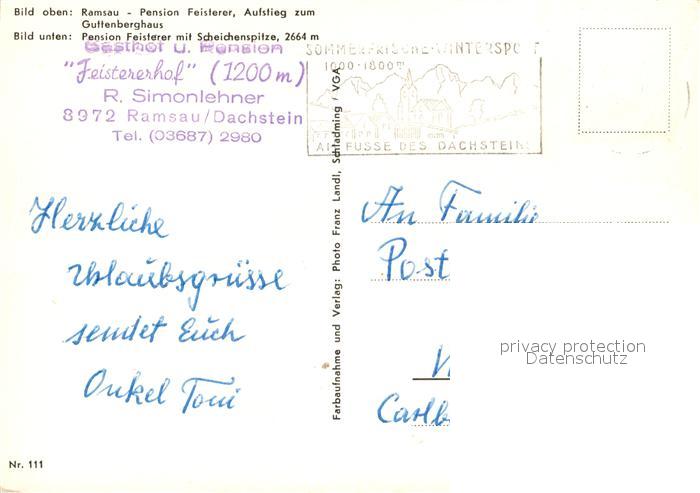 Bild oben: Ramsau - Pension Feisterer, Aufstieg zum
Guttenberghaus
Bild unten: Pension Feisterer mit Scheichenspitze, 2664 m
Gasthof u. Pension
"Feistererhof" (1200 m)
R. Simonlehner
8972 Ramsau/Dachstein
Tel. (03687) 2980
SOMMERFRISCHE-WINTERSPORT
1000-1800 m
AM FUSSE DES DACHSTEINS
Farbaufnahme und Verlag: Photo Franz Landl, Schladming / VGA
Herzliche
Urlaubsgrüsse
sendet Euch
Onkel Toni
An Familie
Post
Carlb
privacy protection
Datenschutz
Nr. 111